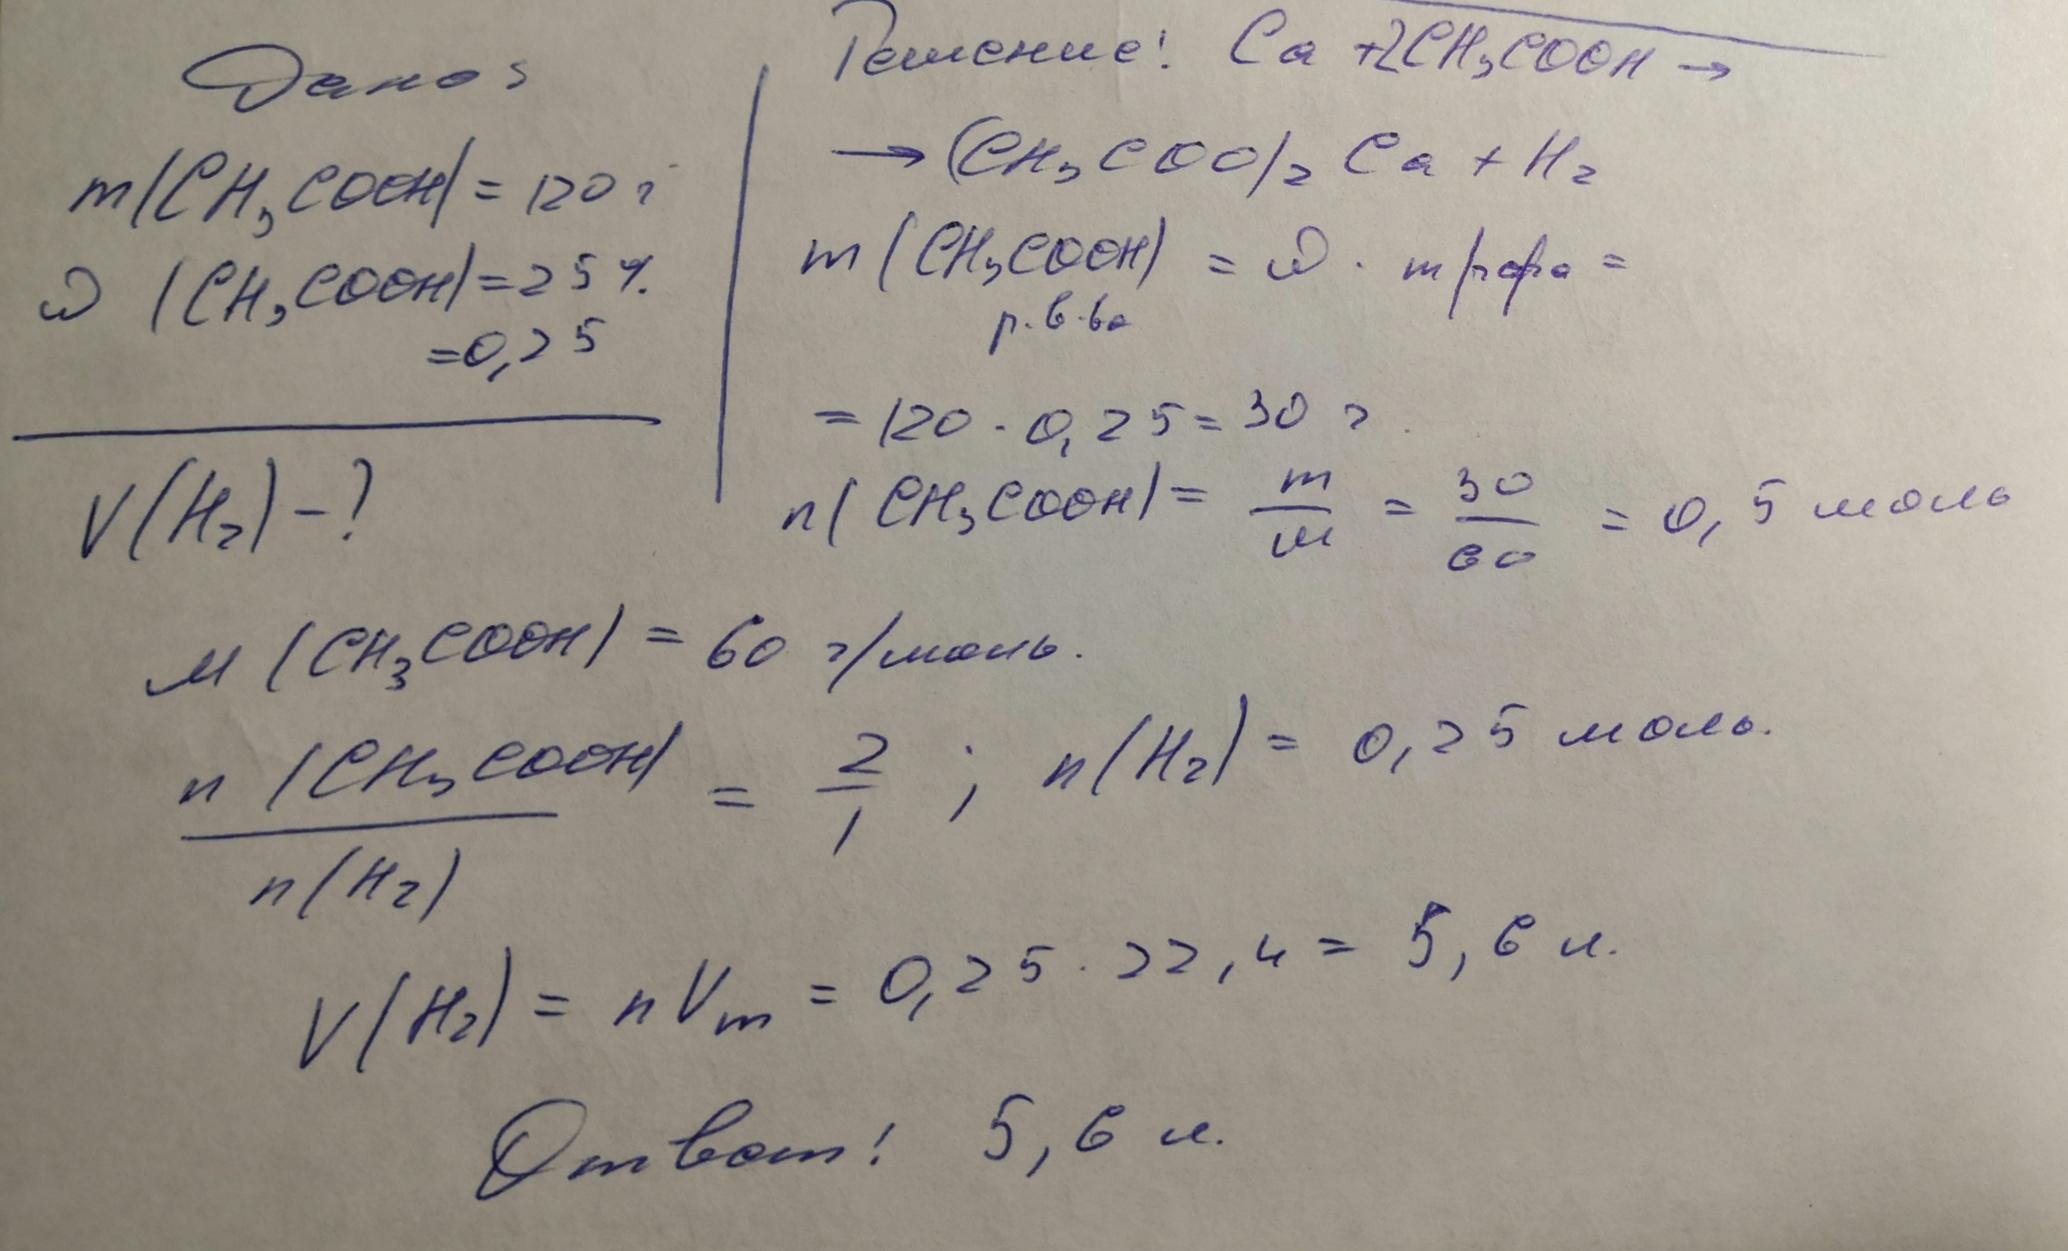 Дано:
m(CH₃COOH) = 120 г
ω (CH₃COOH) = 25 %
= 0,25
V(H₂) - ?
Решение: Ca + 2CH₃COOH →
→ (CH₃COO)₂ Ca + H₂
m (CH₃COOH) = ω · m р-ра =
р. в-ва
= 120 · 0,25 = 30 г.
n( CH₃COOH) = m/M = 30/60 = 0,5 моль
M (CH₃COOH) = 60 г/моль.
n (CH₃COOH)/n(H₂) = 2/1 ; n(H₂) = 0,25 моль.
V(H₂) = n Vm = 0,25 · 22,4 = 5,6 л.
Ответ: 5,6 л.